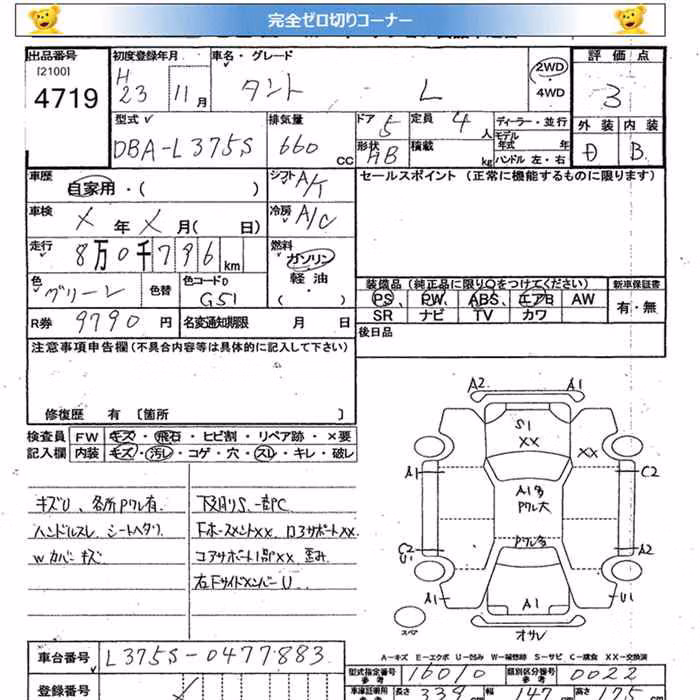 完全ゼロ切りコーナー
出品番号 初度登録年月 車名・グレード 評価点
[2100] 4719 H 23 11月 タント L 2WD ・ 4WD 3
型式 排気量 ドア 5 定員 4人 ディーラー・並行 外装 内装
DBA-L375S 660 CC 形状 HB 積載 kg モデル年式 年 ハンドル 左・右 D B
車歴 自家用・( ) シフト A/T セールスポイント (正常に機能するものに限ります)
車検 X年X月( 日) 冷房 A/C
走行 8万0千796km 燃料 ガソリン
軽油
色 グリーン 色替 色コードNo G51 ・( ) 装備品(純正品に限り○をつけてください) 新車保証書
PS、PW、ABS、エアB AW 有・無
SR ナビ TV カワ
R券 9790円 名変通知期限 月 日 後日品
注意事項申告欄(不具合内容等は具体的に記入して下さい)
修復歴 有 [箇所 ]
検査員 FW キズ・飛石・ヒビ割・リペア跡・×要
記入欄 内装 キズ・汚レ・コゲ・穴・スレ・キレ・破レ
A2 A1
S1
XX XX
A1 C2
A1多
Pワレ大
Pワレ多
C2
U1 A2
A1 A1 U1
スペア オサレ
キズU、各所Pワレ有. 下廻りS、一部PC
ハンドルスレ シートヘタリ. FホースメントXX ロアサポートXX
Wカバーキズ コアサポート1部XX 歪み
右FサイドメンバーU
A-キズ E-エクボ U-凹み W-補修跡 S-サビ C-腐食 XX-交換済
車台番号 L375S-0477883 型式指定番号 参考 16010 類別区分番号 参考 0022
登録番号 車庫証明用 長さ 339 幅 147 高さ 175